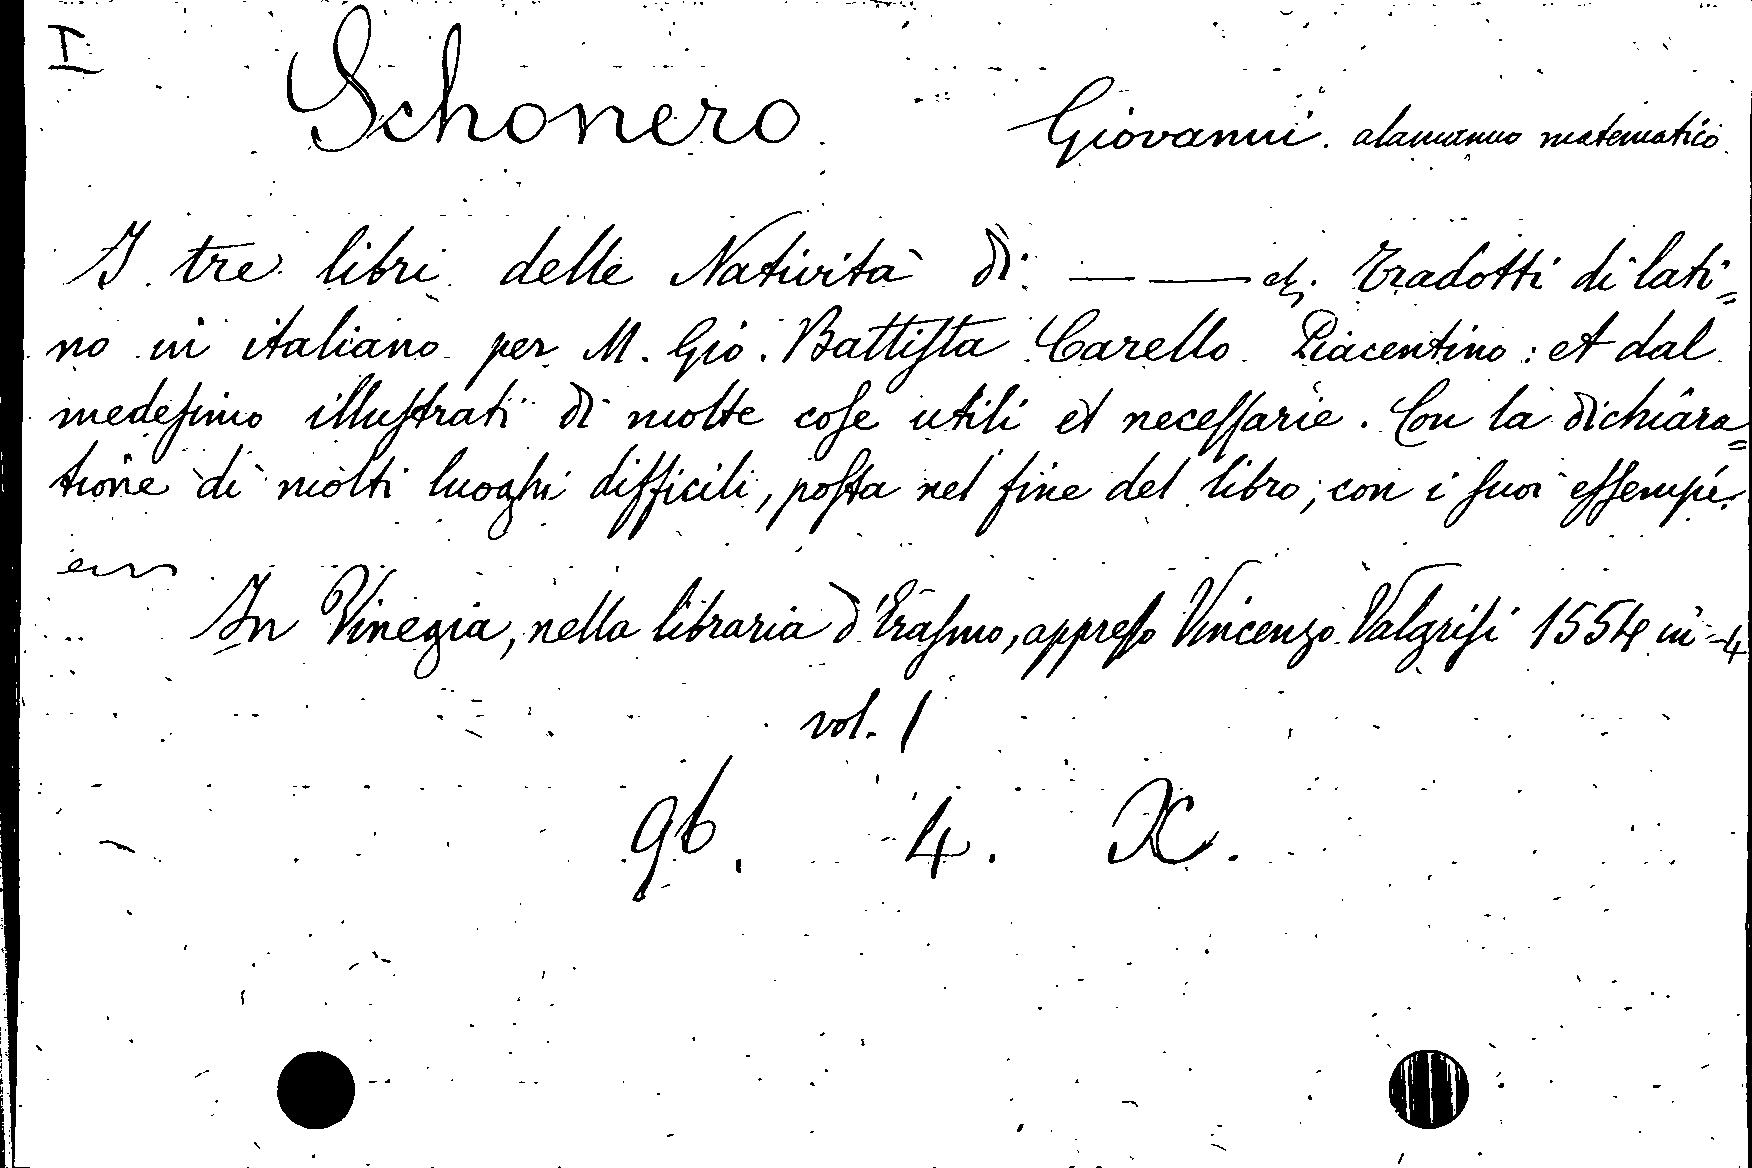 I
Schonero Giovanni. alamanno matematico
I tre libri delle Natività di — — etc. Tradotti di lati=
no in italiano per M. Gio. Battiſta Carello Piacentino: et dal
medeſimo illuſtrati di molte coſe utili et neceſſarie. Con la dichiara=
tione di molti luoghi difficili, poſta nel fine del libro; con i ſuoi eſſempi.
In Vinegia, nella libraria d'Eraſmo, appreſſo Vincenzo Valgriſi 1554 in-4
vol. 1
96. 4. X.